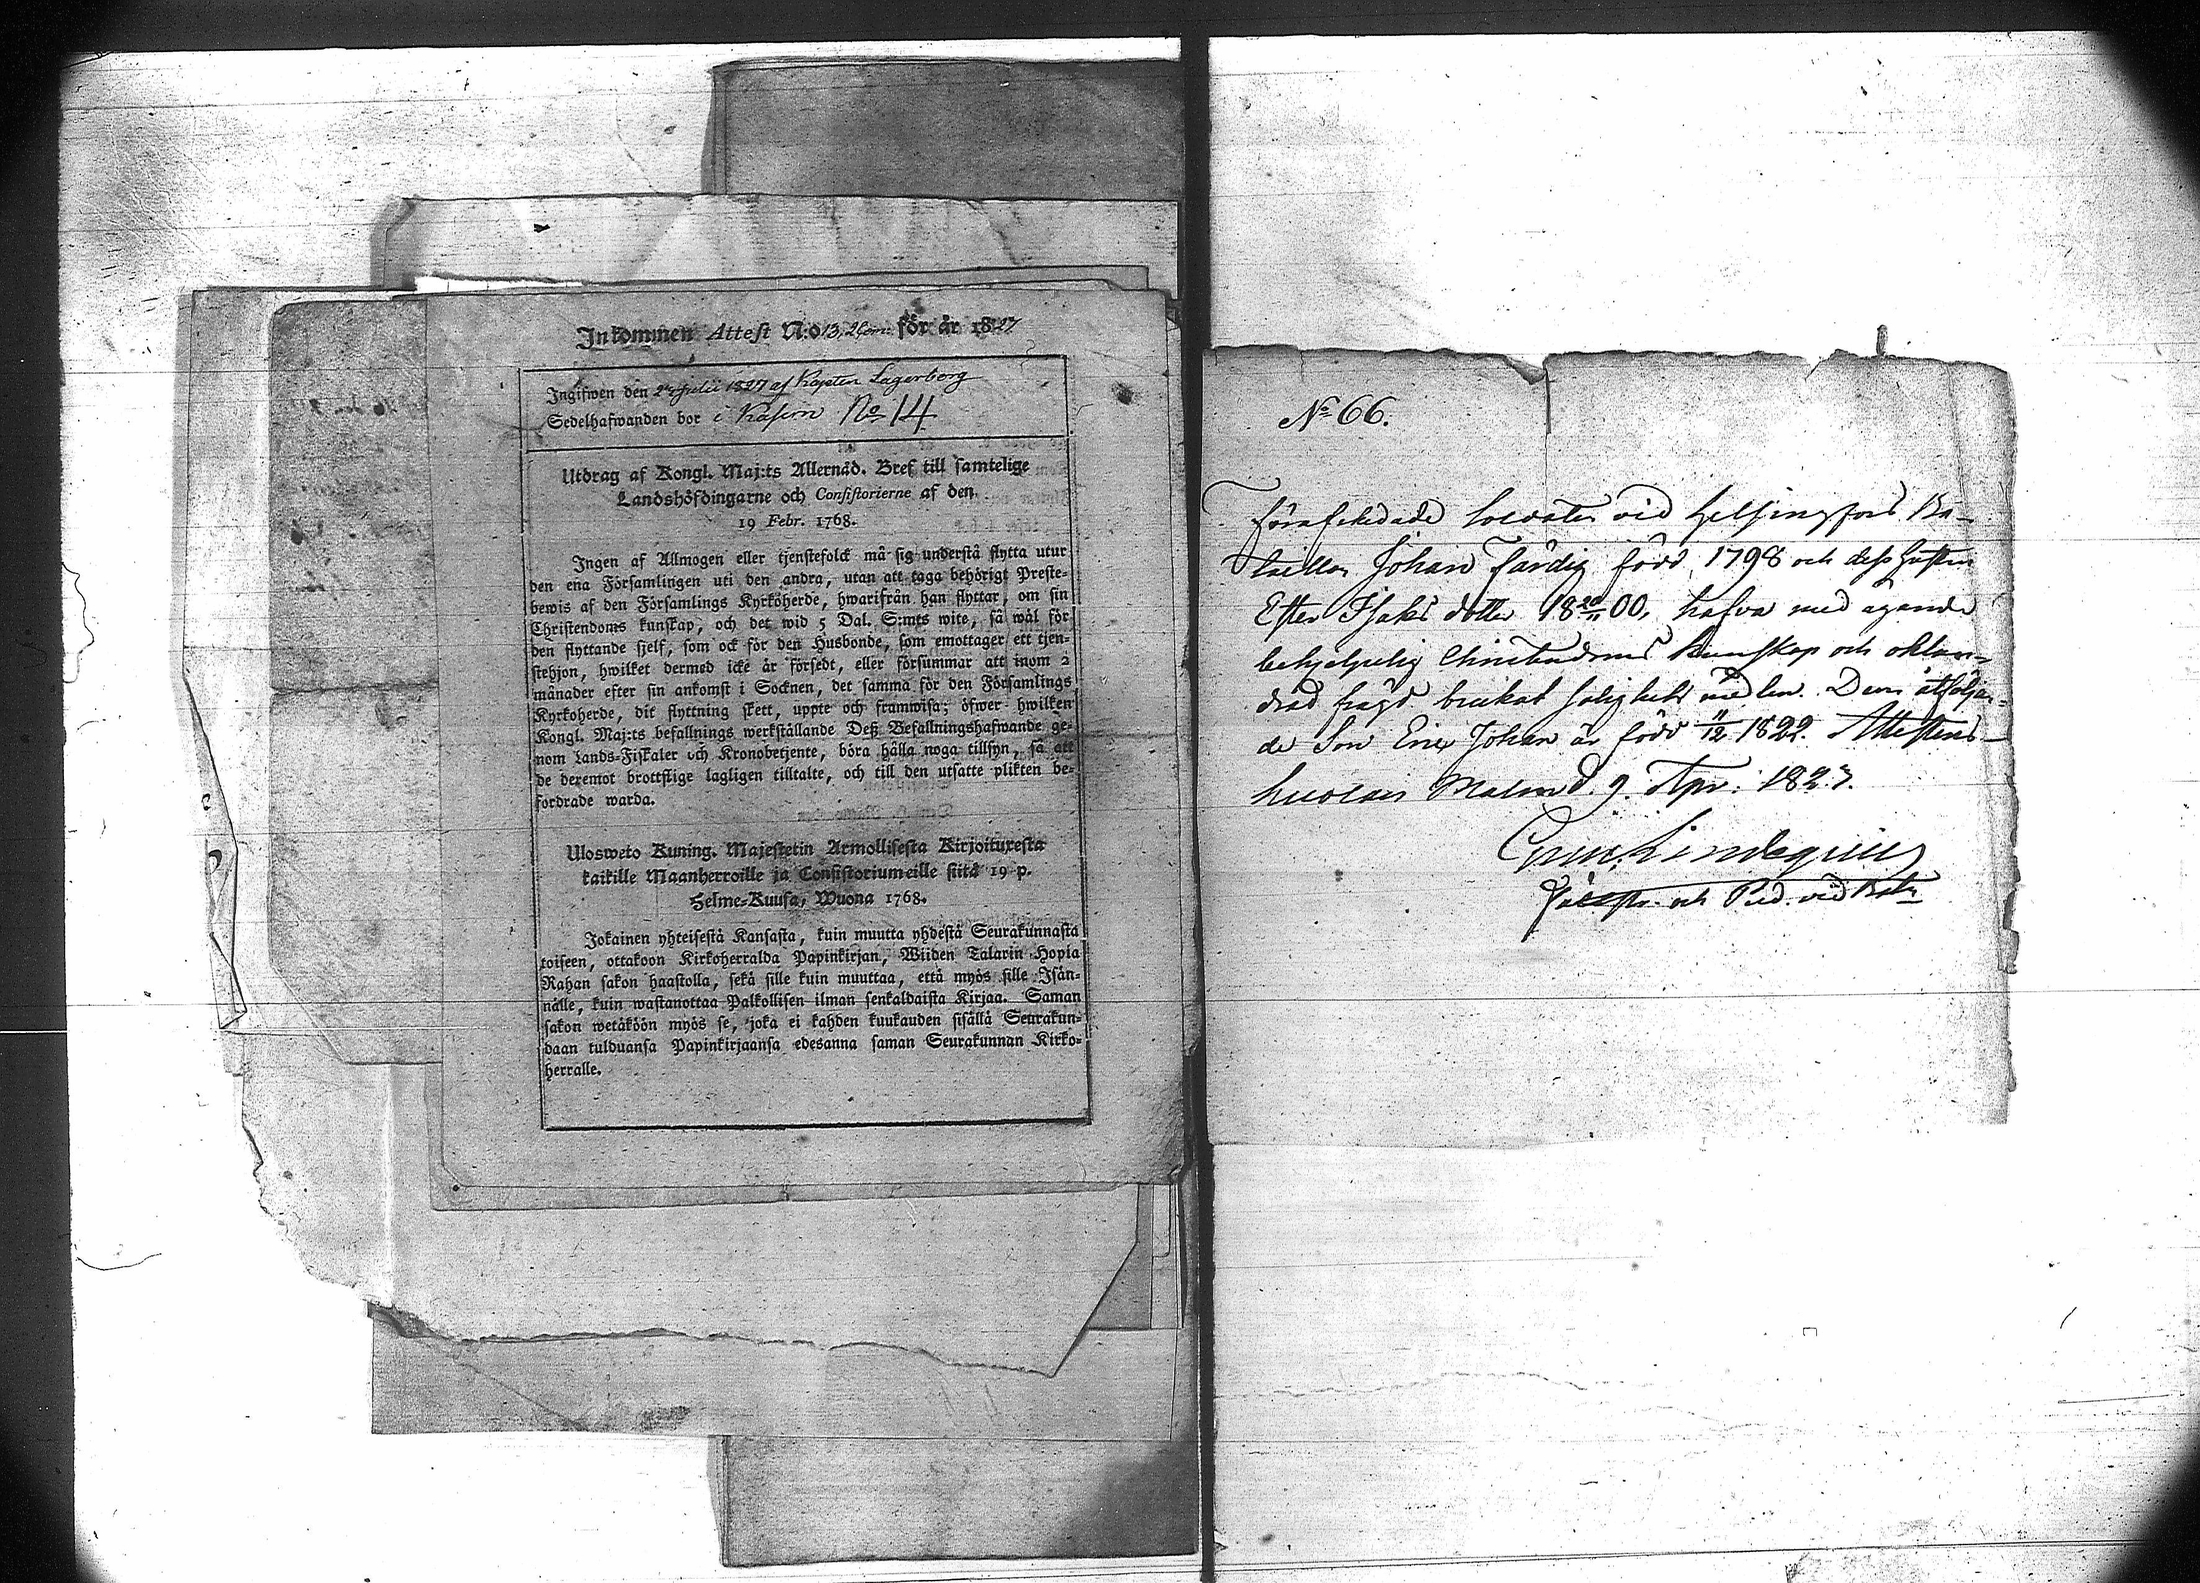 Inkommen Attest N:o 13, 2 för år 1827
Ingifwen den 2 Julii 1827 af Kapten Lagerborg
Sedelhafwanden bor i Kasern No 14
Utdrag af Kongl. Maj:ts Allernåd. Bref till samtelige
Landshöfdingarne och Consistorierne af den
19 Febr. 1768.
Ingen af Allmogen eller tjenstefolck må sig understå flytta utur
den ena Församlingen uti den andra, utan att taga behörigt Preste-
bewis af den Församlings Kyrkoherde, hwarifrån han flyttar, om sin
Christendoms kunskap, och det wid 5 Dal. S:mts wite, så wäl för
den flyttande sjelf, som ock för den Husbonde, som emottager ett tjen-
stehjon, hwilket dermed icke är försedt, eller försummar att inom 2
månader efter sin ankomst i Socknen, det samma för den Församlings
Kyrkoherde, dit flyttning skett, uppte och framwisa; öfwer hwilken
Kongl. Maj:ts befallnings werkställande Deß Befallningshafwande ge-
nom Lands-Fiskaler och Kronobetjente, böra hålla noga tillsyn, så att
de deremot brottslige lagligen tilltalte, och till den utsatte plikten be-
fordrade warda.
Ulosweto Kuning. Majestetin Armollisesta Kirjoituresta
kaikille Maanherroille ja Consistoriumeille siitä 19 p.
Helme-Kuusa, Wuona 1768.
Jokainen yhteisestä Kansasta, kuin muutta yhdestä Seurakunnasta
toiseen, ottakoon Kirkoherralda Papinkirjan, Wiiden Talarin Hopia
Rahan sakon haastolla, sekä sille kuin muuttaa, että myös sille Isän-
nälle, kuin wastanottaa Palkollisen ilman senkaldaista Kirjaa. Saman
sakon wetäköön myös se, joka ei kahden kuukauden sisällä Seurakun-
daan tulduansa Papinkirjaansa edesanna saman Seurakunnan Kirko-
herralle.
No 66.
Förafskedade Soldaten vid Helsingfors Ba-
taillon Johan Färdig född 1798 och dess hustru
Ester Isaks dotter 18 20/11 00, hafva med ägande
behjelpelig Christendoms kunskap och oklan-
drad frägd brukat salighets medlen. Deras åtföljan-
de Son Eric Johan är född 11/12 1822. Attesteras
Malm d. 9. Apr: 1827.
Eric Lindequist
och Pred. vid Bat:n